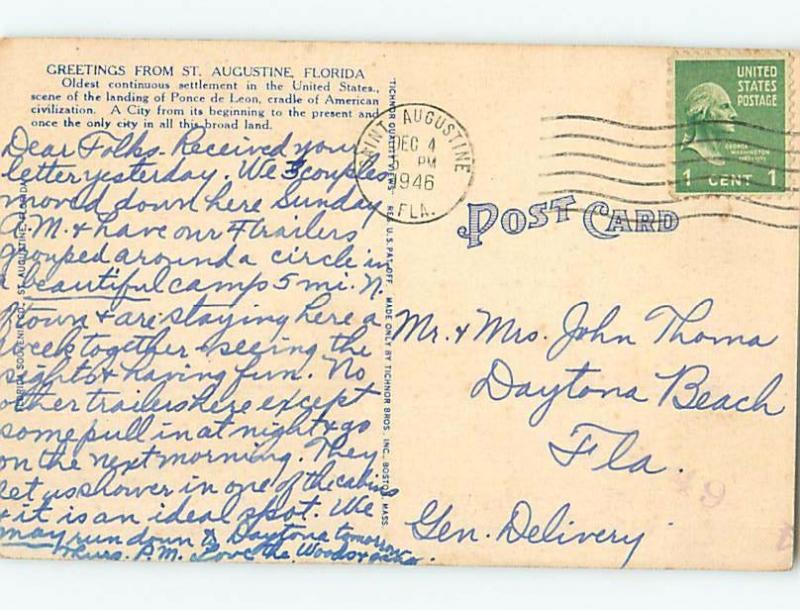 GREETINGS FROM ST. AUGUSTINE, FLORIDA
Oldest continuous settlement in the United States.,
scene of the landing of Ponce de Leon, cradle of American
civilization. A City from its beginning to the present and
once the only city in all this broad land.
Dear Folks. Received your
letter yesterday. We 5 couples
moved down here Sunday
A.M. & have our trailers
grouped around a circle in
a beautiful camp 5 mi. N.
town & are staying here a
week together - seeing the
sights & having fun. No
other trailers here except
some pull in at night & go
on the next morning. They
let us shower in one of the cabins
& it is an ideal spot. We
may run down to Daytona tomorrow
Thurs. P.M. Love the
FLORIDA SOUVENIR CO., ST. AUGUSTINE, FLORIDA
TICHNOR QUALITY VIEWS REG. U.S. PAT. OFF. MADE ONLY BY TICHNOR BROS. INC., BOSTON, MASS.
SAINT AUGUSTINE
DEC 4
PM
1946
FLA.
UNITED
STATES
POSTAGE
GEORGE
WASHINGTON
1 CENT 1
POST CARD
Mr. & Mrs. John Thoma
Daytona Beach
Fla.
Gen. Delivery
49